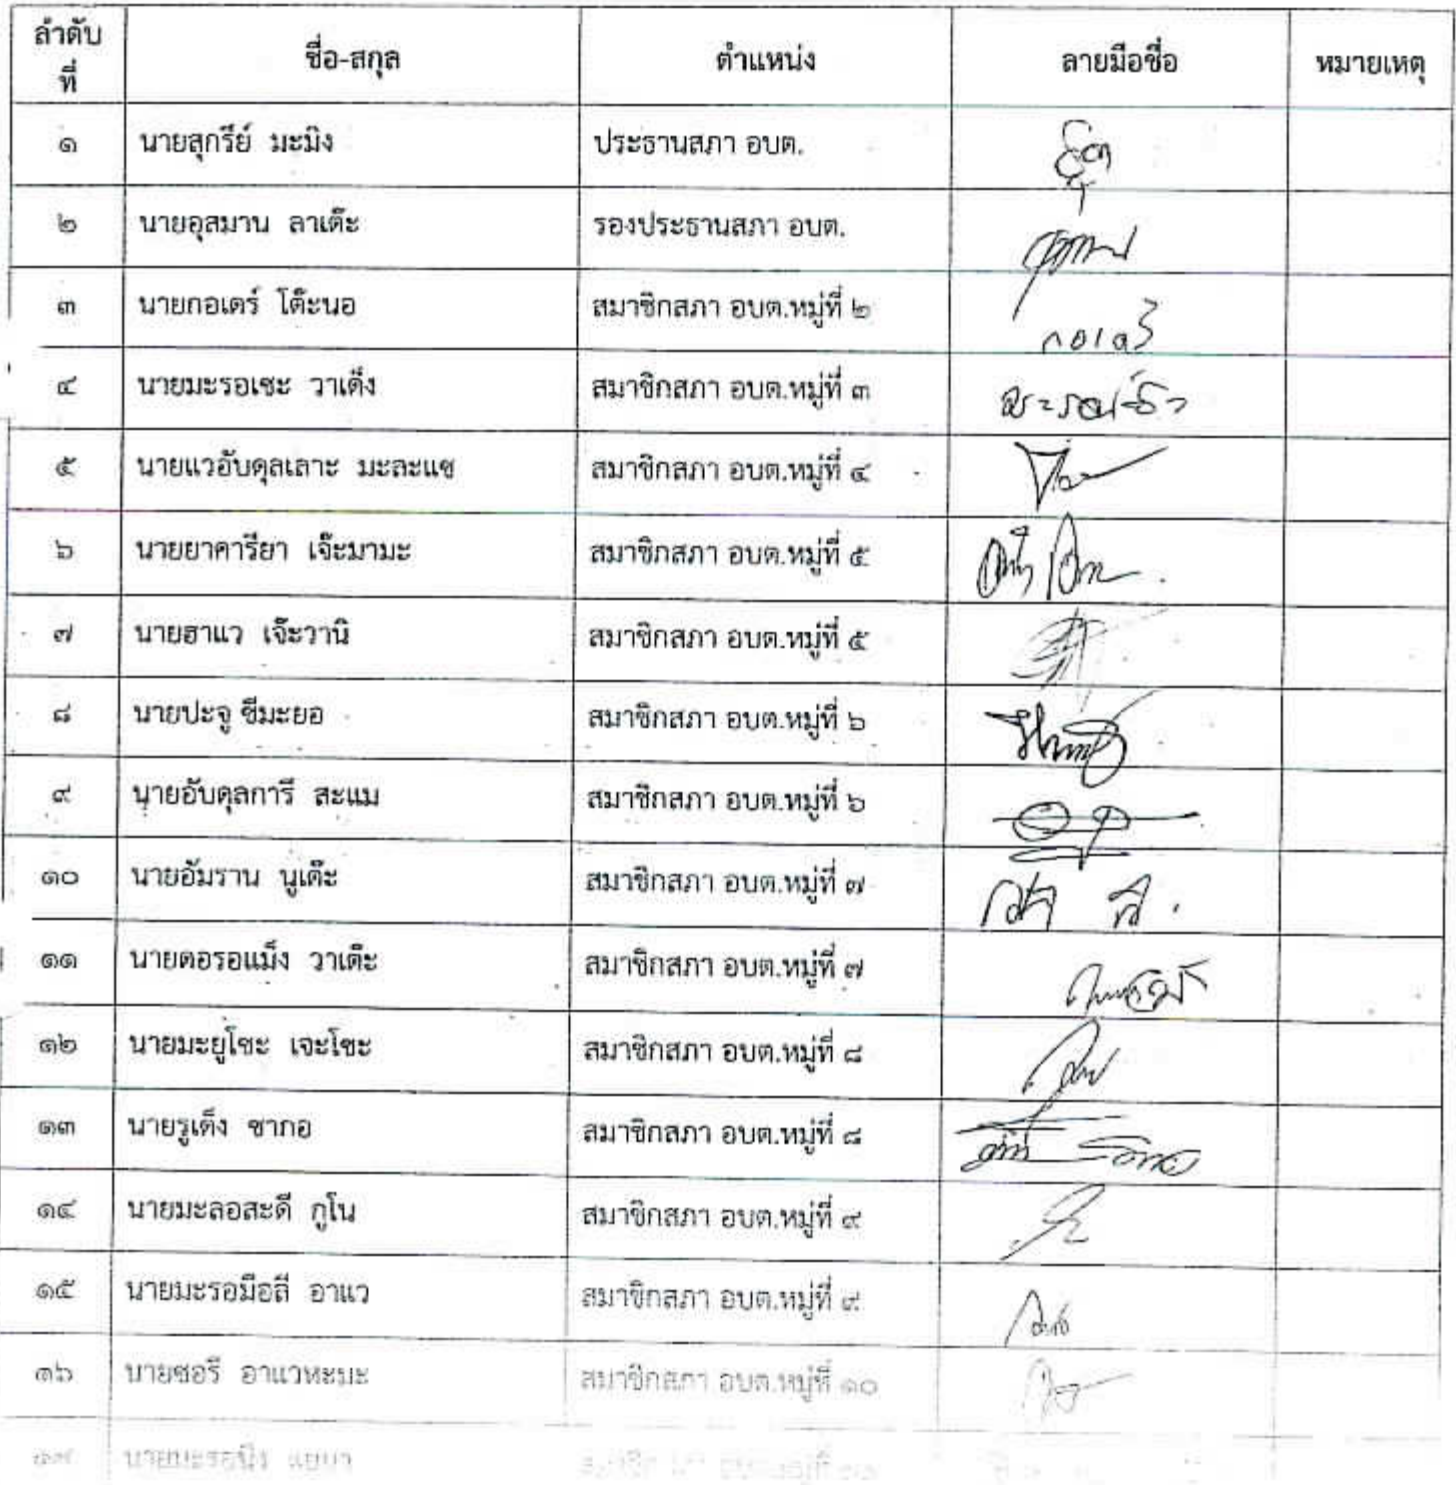 ลำดับ
ที่
ชื่อ-สกุล
ตำแหน่ง
ลายมือชื่อ
หมายเหตุ
๑ นายสุกรีย์ มะมิง ประธานสภา อบต.
๒ นายอุสมาน ลาเต๊ะ รองประธานสภา อบต.
๓ นายกอเดร์ โต๊ะนอ สมาชิกสภา อบต.หมู่ที่ ๒ กอเดร์
๔ นายมะรอเซะ วาเด็ง สมาชิกสภา อบต.หมู่ที่ ๓
๕ นายแวอับดุลเลาะ มะละแซ สมาชิกสภา อบต.หมู่ที่ ๔
๖ นายยาคารียา เจ๊ะมามะ สมาชิกสภา อบต.หมู่ที่ ๕
๗ นายฮาแว เจ๊ะวานิ สมาชิกสภา อบต.หมู่ที่ ๕
๘ นายปะจู ซีมะยอ สมาชิกสภา อบต.หมู่ที่ ๖
๙ นายอับดุลการี สะแม สมาชิกสภา อบต.หมู่ที่ ๖
๑๐ นายอัมราน นูเต๊ะ สมาชิกสภา อบต.หมู่ที่ ๗
๑๑ นายตอรอแม็ง วาเต๊ะ สมาชิกสภา อบต.หมู่ที่ ๗
๑๒ นายมะยูโซะ เจะโซะ สมาชิกสภา อบต.หมู่ที่ ๘
๑๓ นายรูเด็ง ซากอ สมาชิกสภา อบต.หมู่ที่ ๘
๑๔ นายมะลอสะดี กูโน สมาชิกสภา อบต.หมู่ที่ ๙
๑๕ นายมะรอมือลี อาแว สมาชิกสภา อบต.หมู่ที่ ๙
๑๖ นายซอรี อาแวหะมะ สมาชิกสภา อบต.หมู่ที่ ๑๐
๑๗